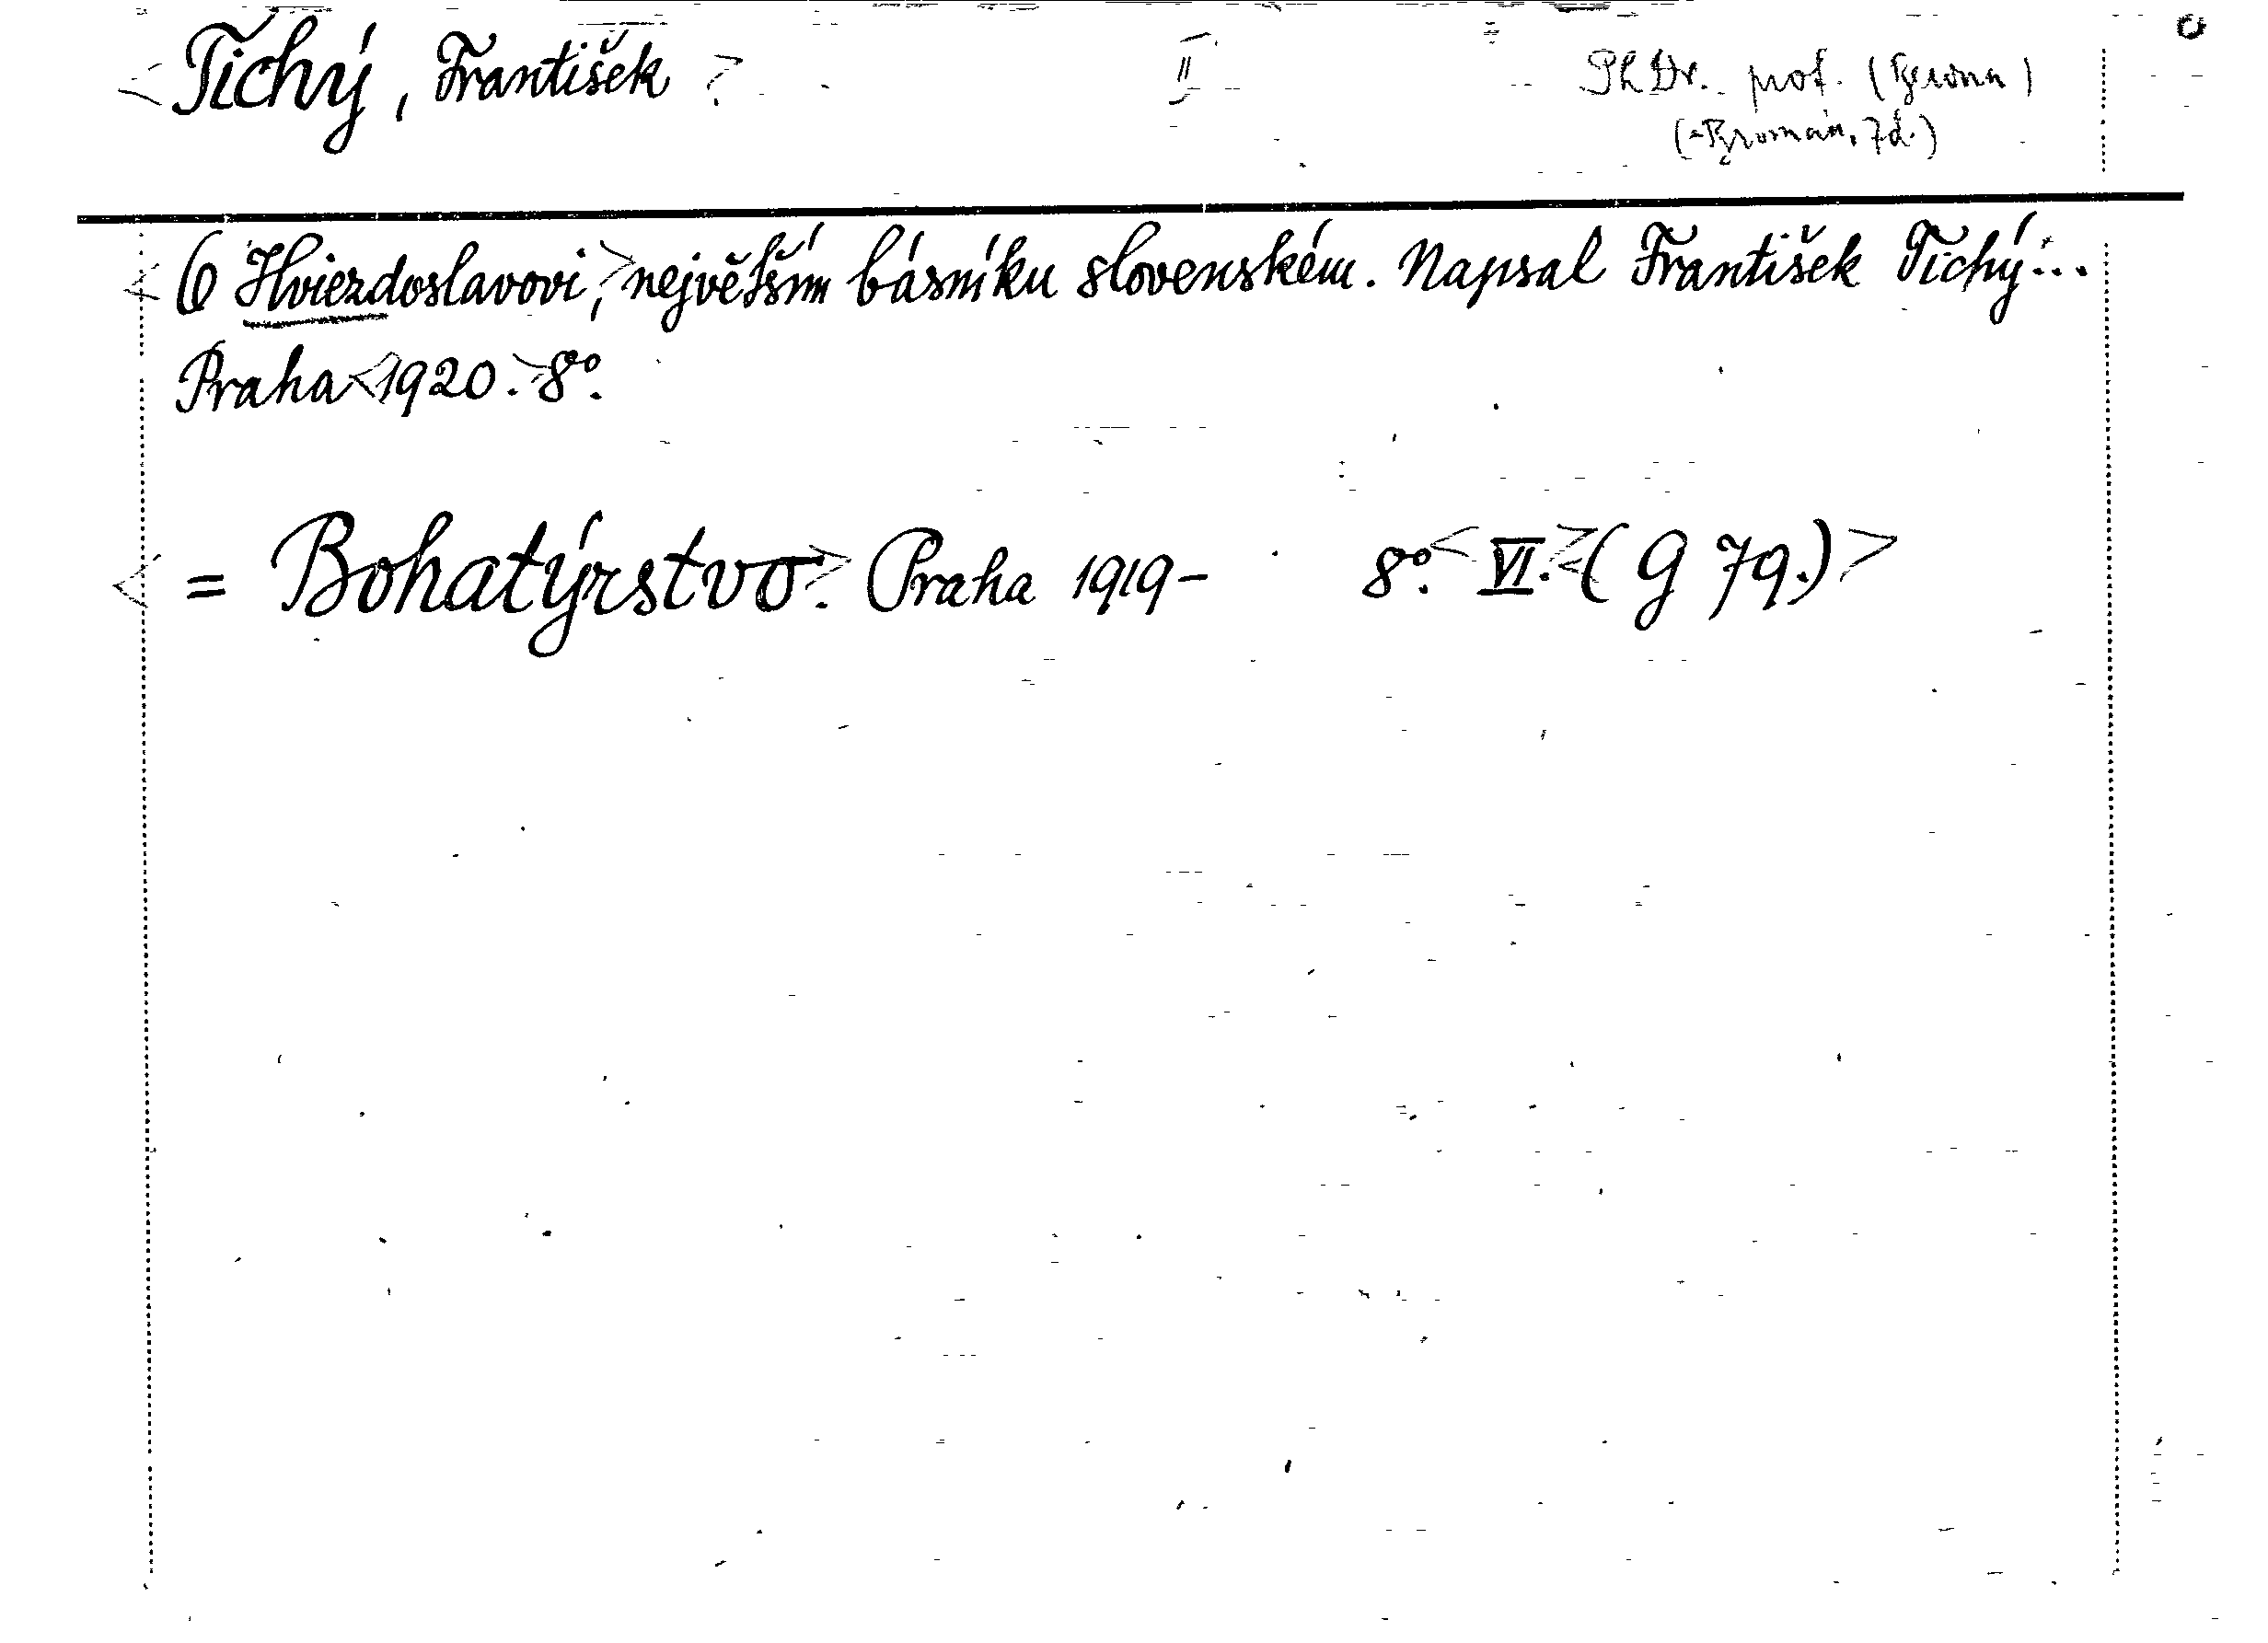 <Tichý, František> II PhDr. prof.
<O Hviezdoslavovi,> největším básníku slovenském. Napsal František Tichý...
Praha <1920.> 8°.
< = Bohatýrstvo.> Praha 1919- 8°. <VI.> <(G 79.)>